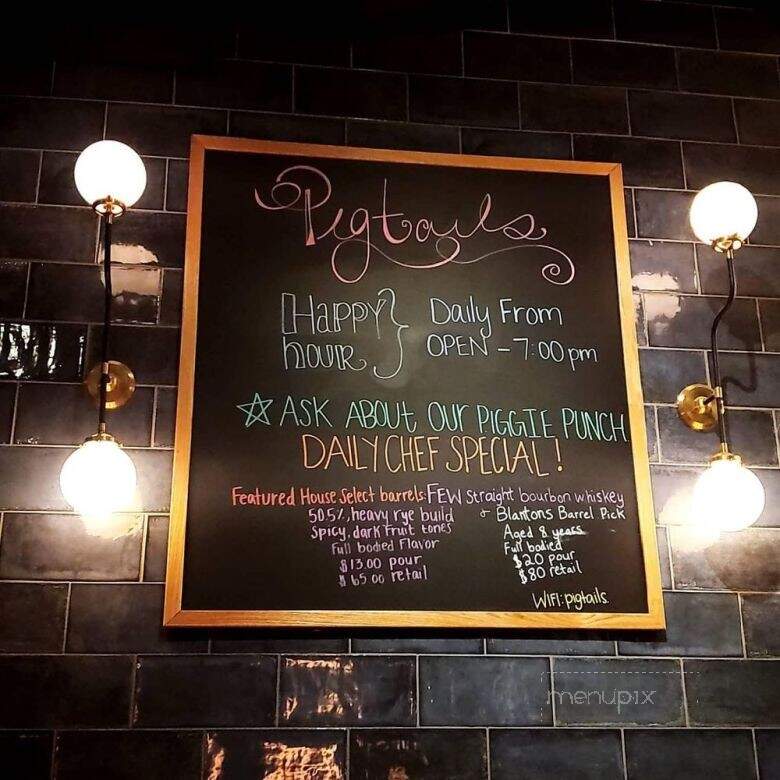 Pigtails
Happy hour } Daily From
OPEN - 7:00pm
☆ ASK ABOUT OUR PIGGIE PUNCH
DAILY CHEF SPECIAL!
Featured House Select barrels: FEW Straight bourbon whiskey
50.5%, heavy rye build
Spicy, dark fruit tones
Full bodied Flavor
$13.00 pour
$65.00 retail
+ Blantons Barrel Pick
Aged 8 years
Full bodied
$20 pour
$80 retail
WIFI: pigtails
menupix